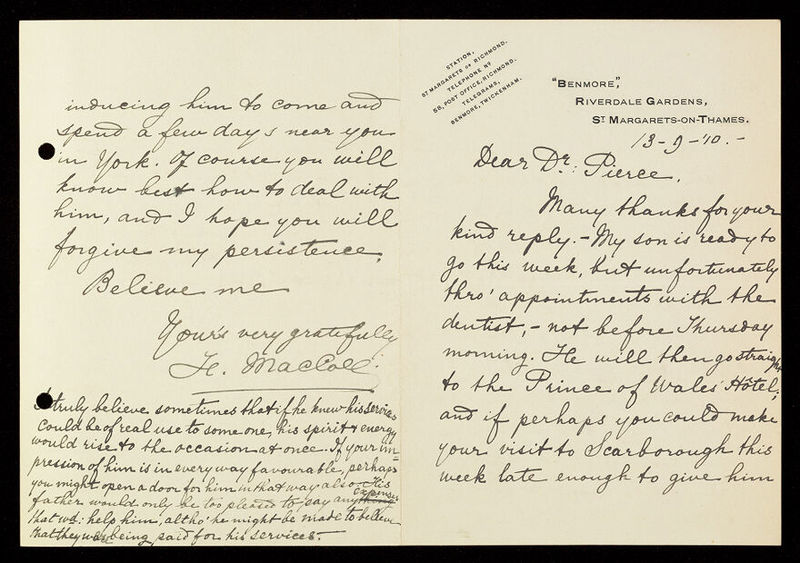 STATION,
ST MARGARETS OR RICHMOND.
TELEPHONE Nº
58, POST OFFICE, RICHMOND.
TELEGRAMS,
BENMORE, TWICKENHAM.
"BENMORE",
RIVERDALE GARDENS,
ST MARGARETS-ON-THAMES.
13-9-'10.-
Dear Dr: Pierce,
Many thanks for your
kind reply. - My son is ready to
go this week, but unfortunately
thro' appointments with the
dentist, - not before Thursday
morning. He will then go straight
to the Prince of Wales' Hôtel,
and if perhaps you could make
your visit to Scarborough this
week late enough to give him
inducing him to come and
spend a few days near you
in York. Of course you will
know best how to deal with
him, and I hope you will
forgive my persistence.
Believe me
Yours very gratefully
MacColl
I truly believe sometimes that if he knew his services
could be of real use to some one, his spirit & energy
would rise to the occasion at once. If your im=
pression of him is in every way favourable, perhaps
you might open a door for him in that way also. His
father would only be too pleased to pay any expenses
that wd: help him, altho' he might be made to believe
that they were being paid for his services.-